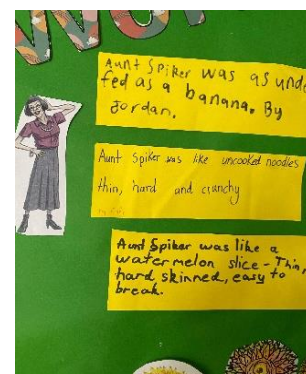 Aunt Spiker was as unde
fed as a banana. By
Jordan.
Aunt Spiker was like uncooked noodles
thin, hard and crunchy
Aunt Spiker was like a
watermelon slice - Thin,
hard skinned, easy to
break.